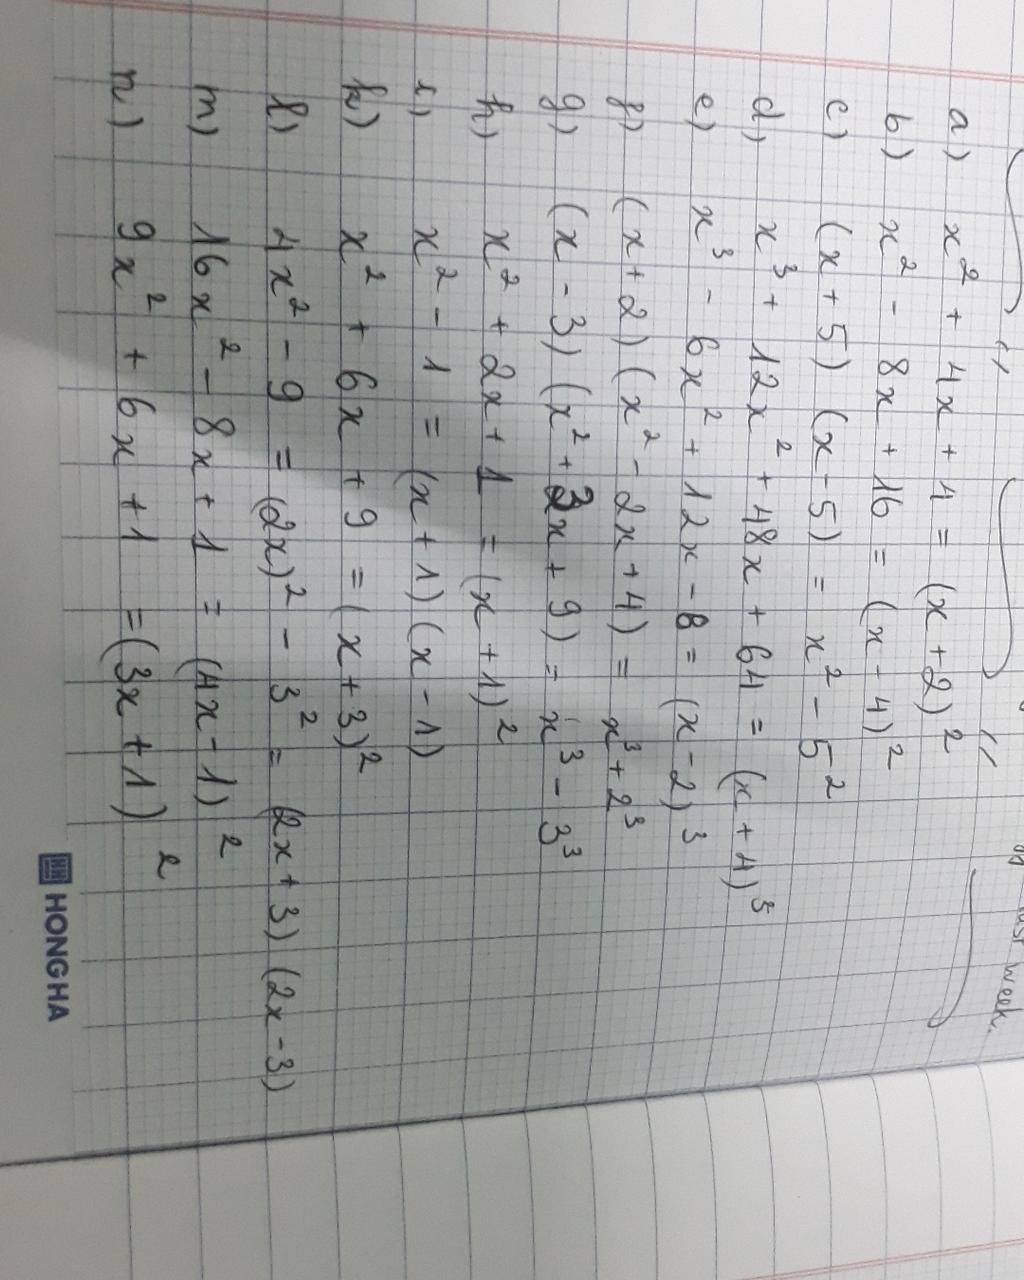 last week.
a) x² + 4x + 4 = (x + 2)²
b) x² - 8x + 16 = (x - 4)²
c) (x + 5) (x - 5) = x² - 5²
d) x³ + 12x² + 48x + 64 = (x + 4)³
e) x³ - 6x² + 12x - 8 = (x - 2)³
f) (x + 2) (x² - 2x + 4) = x³ + 2³
g) (x - 3) (x² + 3x + 9) = x³ - 3³
h) x² + 2x + 1 = (x + 1)²
i) x² - 1 = (x + 1) (x - 1)
k) x² + 6x + 9 = (x + 3)²
l) 4x² - 9 = (2x)² - 3² = (2x + 3) (2x - 3)
m) 16x² - 8x + 1 = (4x - 1)²
n) 9x² + 6x + 1 = (3x + 1)²
HONG HA